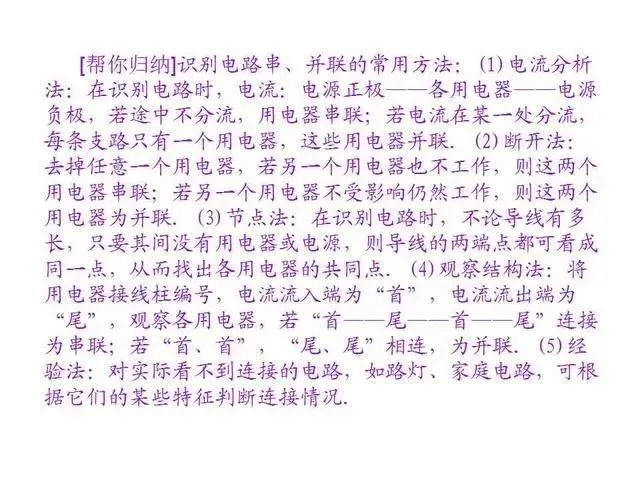 [帮你归纳]识别电路串、并联的常用方法：(1) 电流分析
法：在识别电路时，电流：电源正极——各用电器——电源
负极，若途中不分流，用电器串联；若电流在某一处分流，
每条支路只有一个用电器，这些用电器并联. (2) 断开法：
去掉任意一个用电器，若另一个用电器也不工作，则这两个
用电器串联；若另一个用电器不受影响仍然工作，则这两个
用电器为并联. (3) 节点法：在识别电路时，不论导线有多
长，只要其间没有用电器或电源，则导线的两端点都可看成
同一点，从而找出各用电器的共同点. (4) 观察结构法：将
用电器接线柱编号，电流流入端为“首”，电流流出端为
“尾”，观察各用电器，若“首——尾——首——尾”连接
为串联；若“首、首”，“尾、尾”相连，为并联. (5) 经
验法：对实际看不到连接的电路，如路灯、家庭电路，可根
据它们的某些特征判断连接情况.